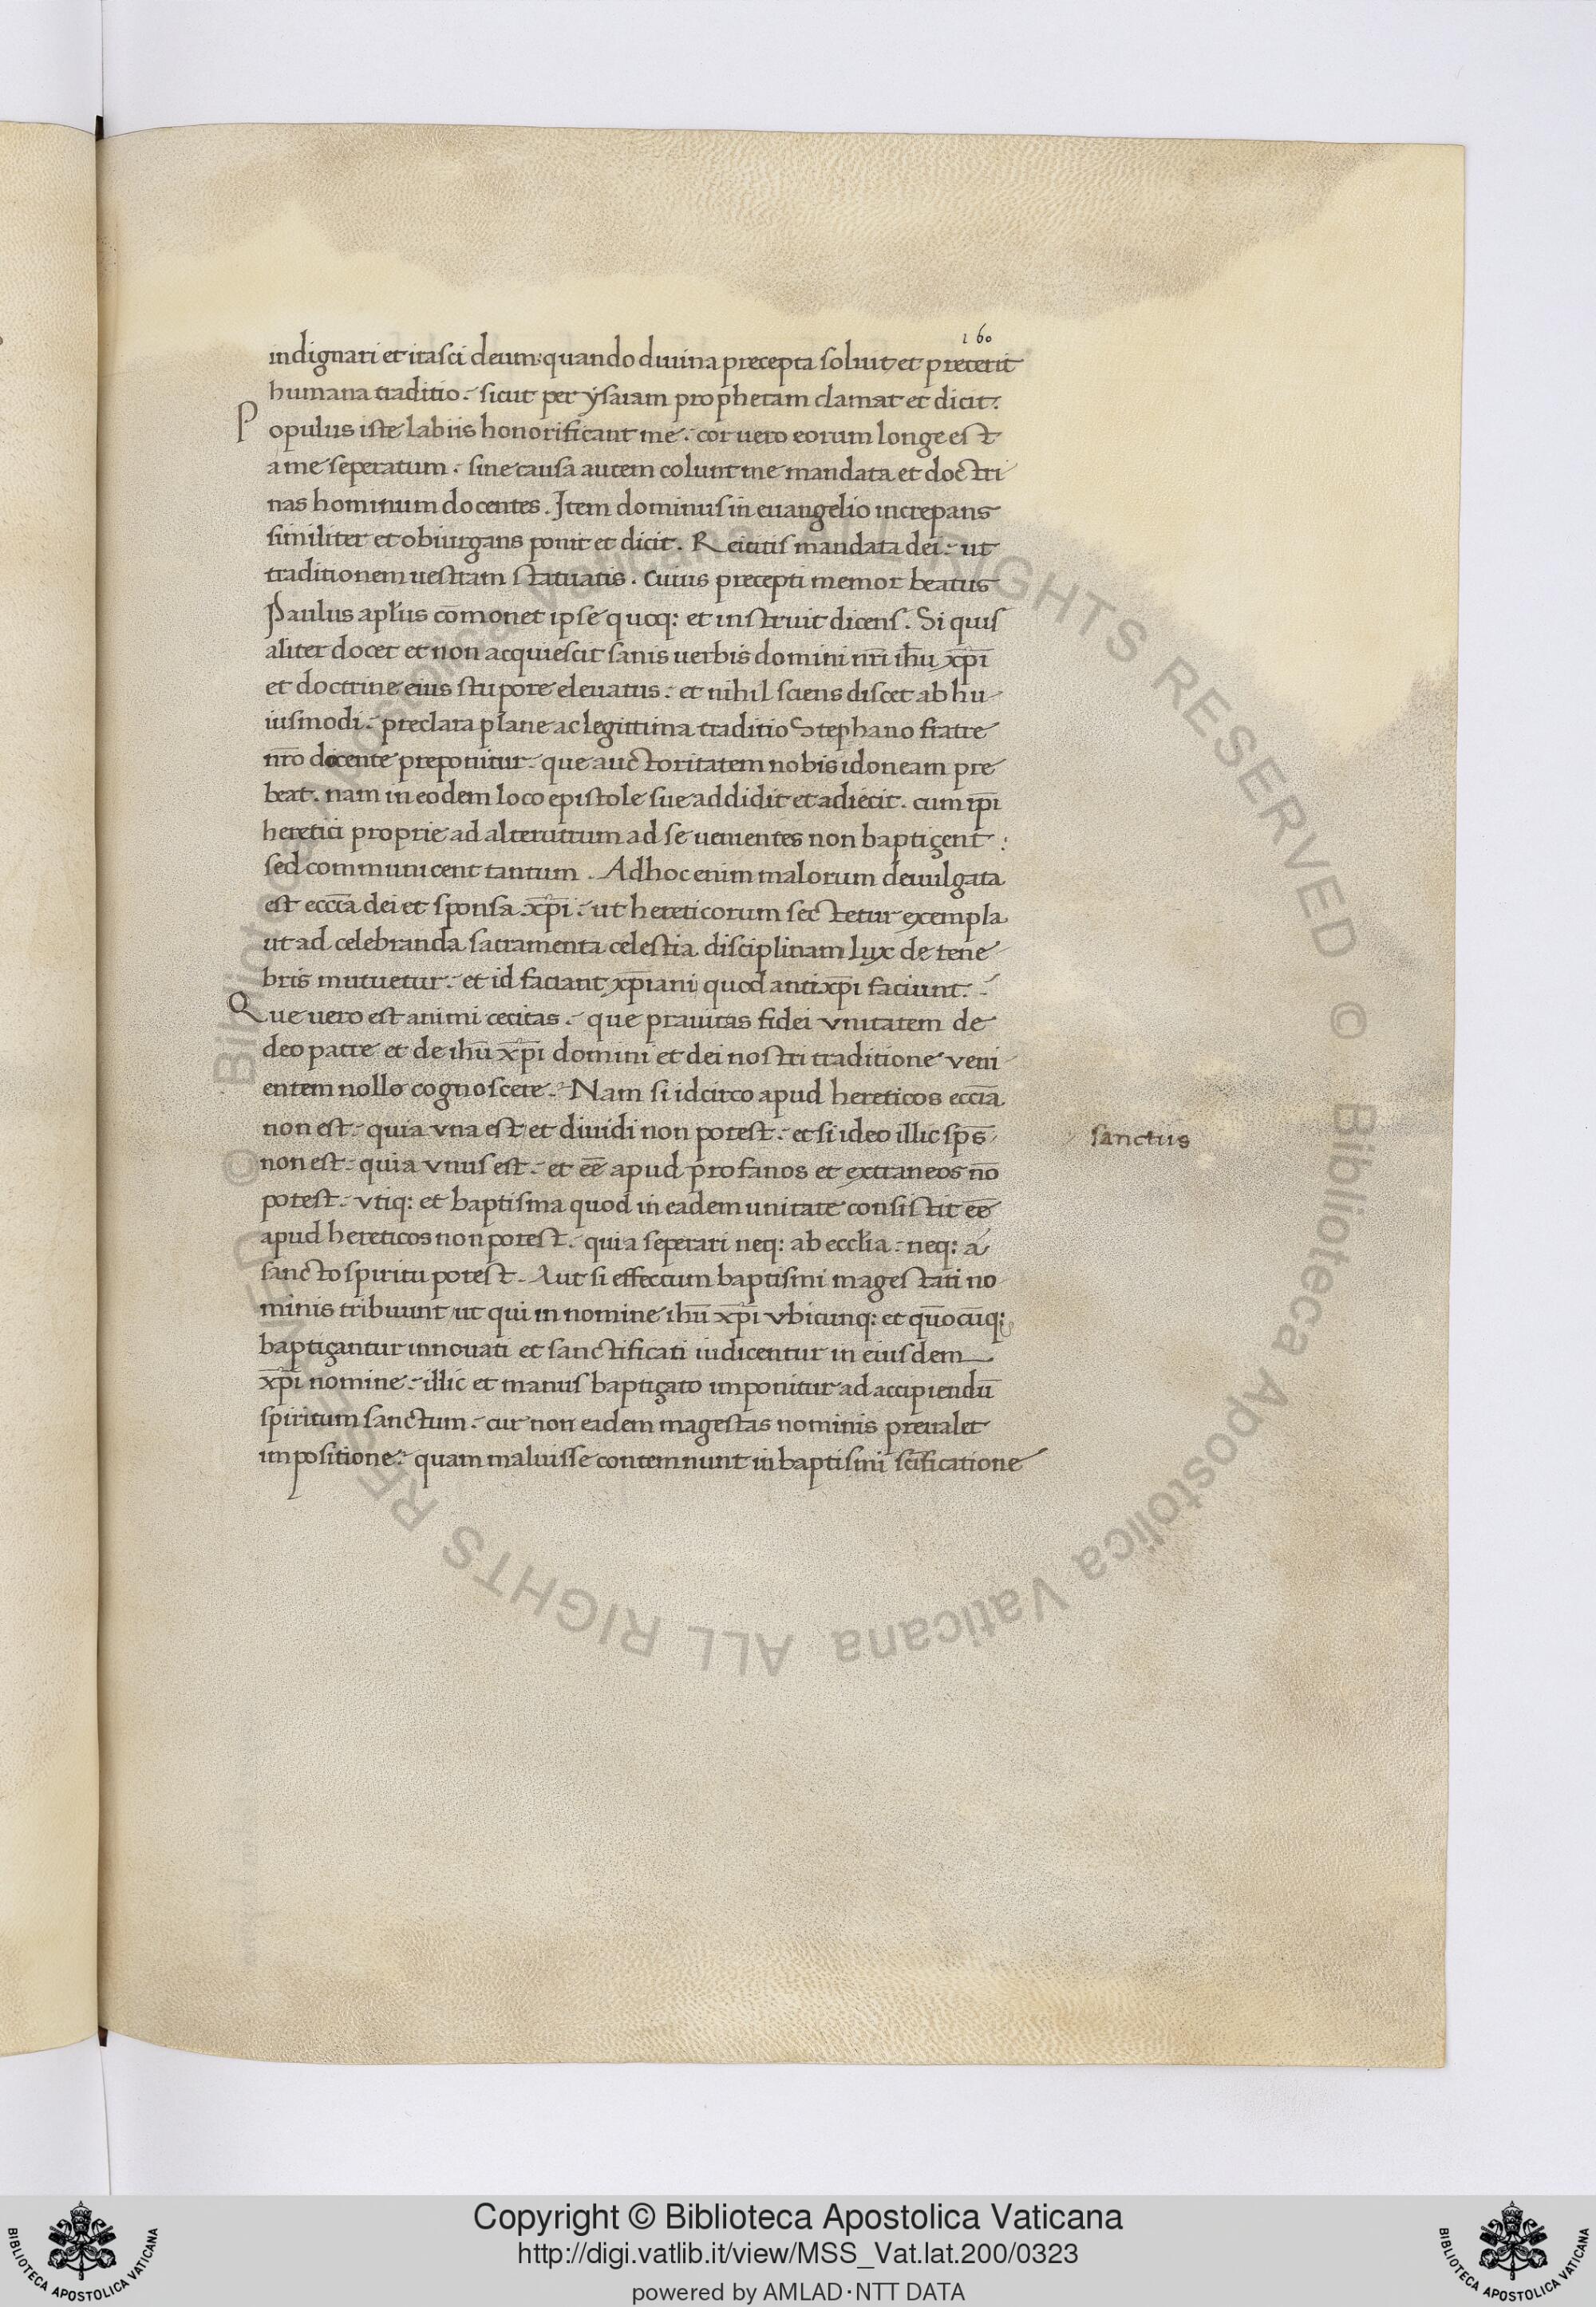 160
indignari et irasci deum: quando diuina precepta soluit et preterit
humana traditio. sicut per ysaiam prophetam clamat et dicit.
Populus iste labiis honorificant me. cor uero eorum longe est
a me seperatum. sine causa autem colunt me mandata et doctri
nas hominum docentes. Item dominus in euangelio increpans
similiter et obiurgans ponit et dicit. Reicitis mandata dei. ut
traditionem uestram statuatis. Cuius precepti memor beatus
Paulus apl̅us co̅monet ipse quoq: et instruit dicens. Si quis
aliter docet et non acquiescit sanis uerbis domini nr̅i ih̅u xp̅i
et doctrine eius stupore eleuatus. et nihil sciens discet ab hu-
iusmodi. preclara plane ac legittima traditio Stephano fratre
nr̅o docente preponitur. que auctoritatem nobis idoneam pre
beat. nam in eodem loco epistole sue addidit et adiecit. cum ip̅i
heretici proprie ad alterutrum ad se uenientes non baptiçent:
sed communicent tantum. Ad hoc enim malorum deuulgata
est ecc̅ia dei et sponsa xp̅i. ut hereticorum sectetur exempla
ut ad celebranda sacramenta celestia disciplinam lux de tene
bris mutuetur. et id faciant xp̅iani quod antixp̅i faciunt.
Que uero est animi cecitas. que prauitas fidei vnitatem de
deo patre et de ih̅u xp̅i domini et dei nostri traditione veni
entem nolle cognoscere. Nam si idcirco apud hereticos ecc̅ia
non est. quia vna est et diuidi non potest. et si ideo illic sp̅s
sanctus
non est. quia vnus est. et ee̅ apud profanos et extraneos no̅
potest. vtiq: et baptisma quod in eadem unitate consistit ee̅
apud hereticos non potest. quia seperari neq: ab eccl̅ia. neq: a
sancto spiritu potest. Aut si effectum baptismi magestati no
minis tribuunt ut qui in nomine ih̅u xp̅i vbicunq: et quo̅cu̅q:
baptiçantur innouati et sanctificati iudicentur in eiusdem
xp̅i nomine. illic et manus baptiçato imponitur ad accipiendu̅
spiritum sanctum. cur non eadem magestas nominis preualet
impositione. quam maluisse contemnunt in baptismi sc̅ificatione
© Biblioteca Apostolica Vaticana ALL RIGHTS RESERVED © Biblioteca Apostolica Vaticana ALL RIGHTS RESERVED
Copyright © Biblioteca Apostolica Vaticana
http://digi.vatlib.it/view/MSS_Vat.lat.200/0323
powered by AMLAD·NTT DATA
BIBLIOTECA APOSTOLICA VATICANA
BIBLIOTECA APOSTOLICA VATICANA